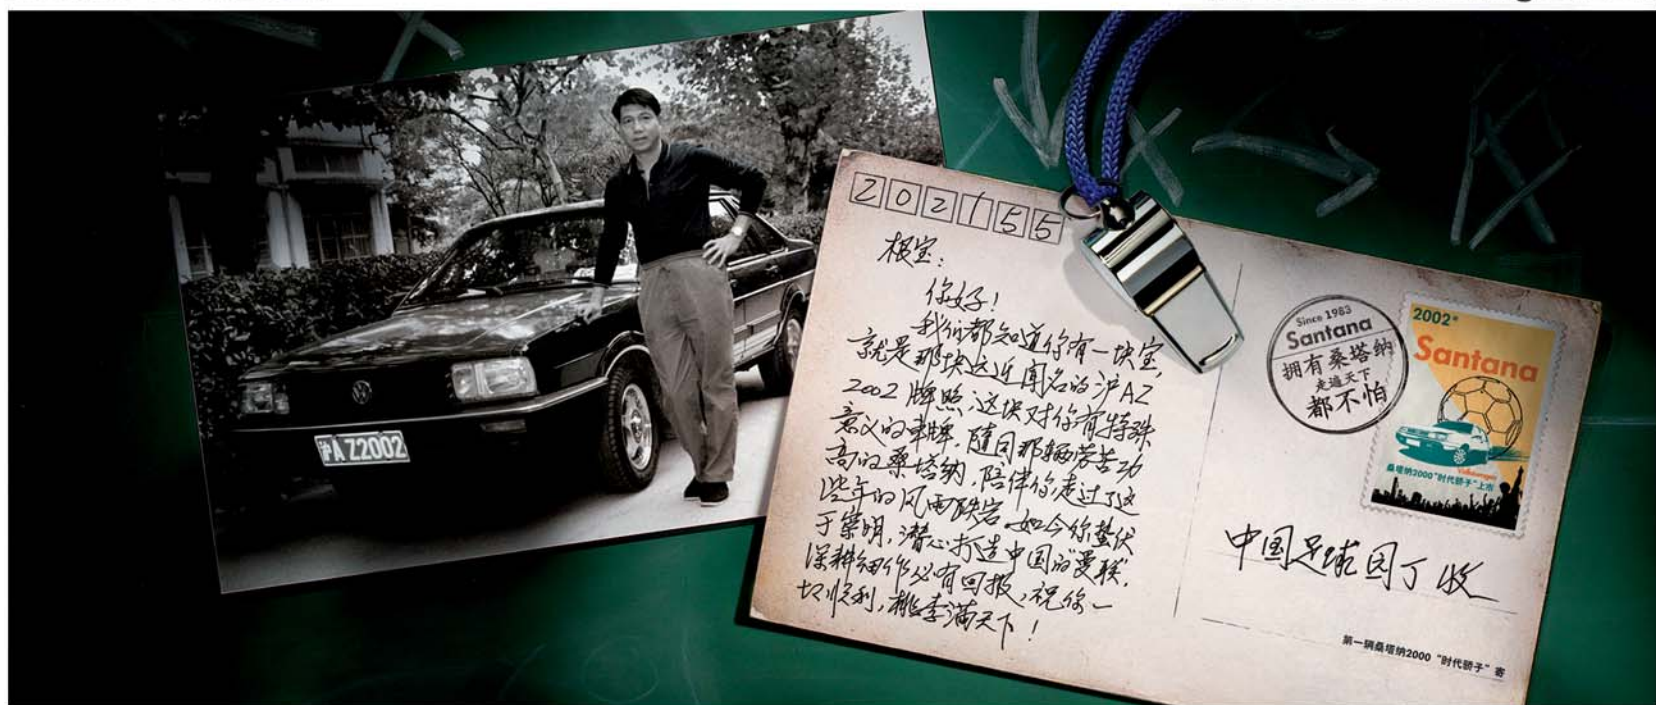 沪A Z2002
202155
根宝：
你好！
我们都知道你有一块宝，
就是那块远近闻名的沪AZ
2002牌照，这块对你有特殊
意义的车牌，随同那辆劳苦功
高的桑塔纳，陪伴你走过了这
些年的风雨跌宕。如今你蛰伏
于崇明，潜心打造中国的“曼联”，
深耕细作必有回报，祝你一
切顺利，桃李满天下！
Since 1983
Santana
拥有桑塔纳
走遍天下
都不怕
2002*
Santana
Volkswagen
桑塔纳2000“时代骄子”上市
中国足球园丁收
第一辆桑塔纳2000“时代骄子”寄